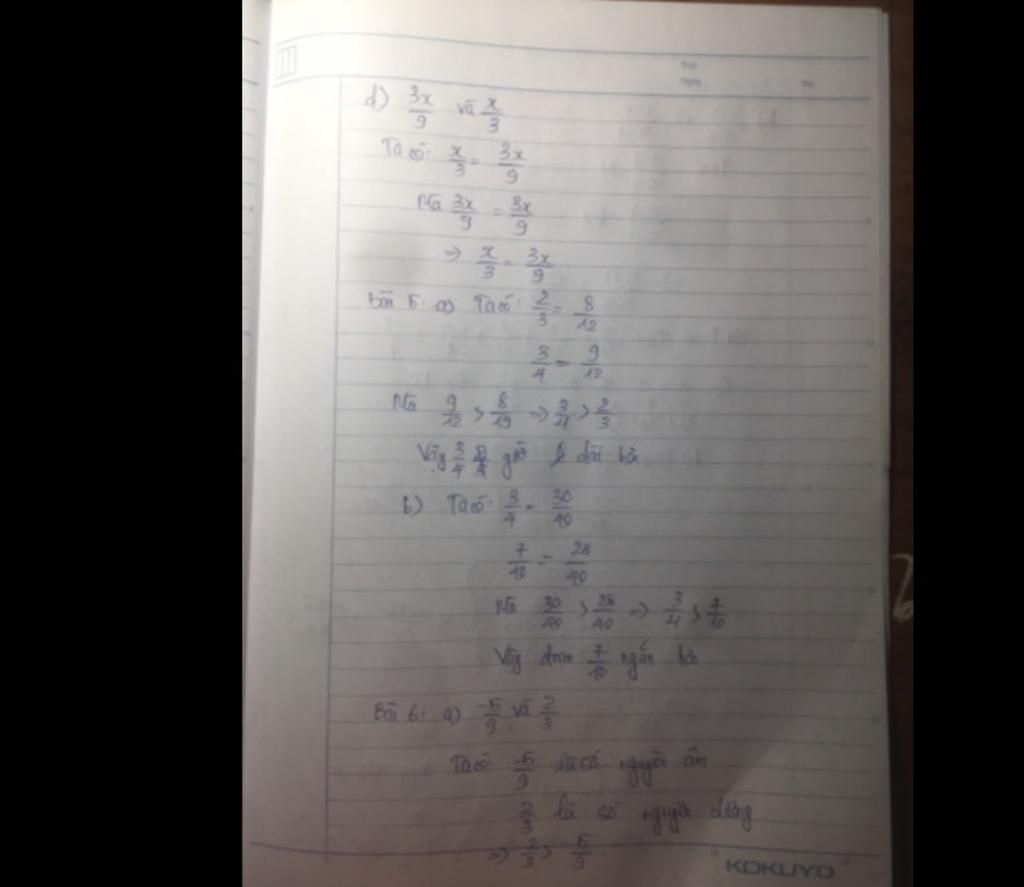 d) 3x/9 và x/3
Ta có: x/3 = 3x/9
Mà 3x/9 = 3x/9
=> x/3 = 3x/9
Bài 5: a) Ta có: 2/3 = 8/12
3/4 = 9/12
Mà 9/12 > 8/12 => 3/4 > 2/3
Vậy 3/4 giờ dài hơn
b) Ta có: 3/4 = 30/40
7/10 = 28/40
Mà 30/40 > 28/40 => 3/4 > 7/10
Vậy đoạn 7/10 ngắn hơn
Bài 6: a) -5/9 và 2/3
Ta có -5/9 là số nguyên âm
2/3 là số nguyên dương
=> 2/3 > -5/9
KOKUYO